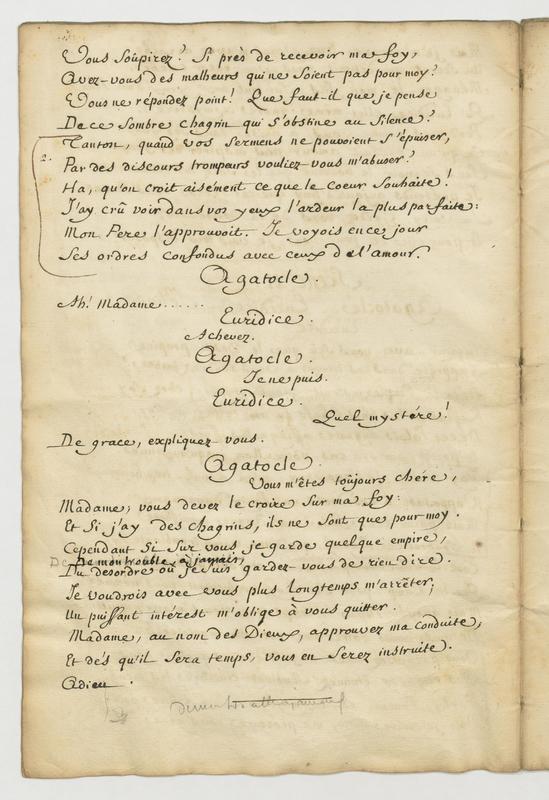 Vous soûpirez? Si près de recevoir ma foy,
Avez-vous des malheurs qui ne soient pas pour moy?
Vous ne répondez point! Que faut-il que je pense
De ce sombre chagrin qui s'obstine au silence?
2. Tanton, quand vos sermens ne pouvoient s'épuiser,
Par des discours trompeurs vouliez-vous m'abuser?
Ha, qu'on croit aisément ce que le coeur souhaite!
J'ay crû voir dans vos yeux l'ardeur la plus parfaite:
Mon Pere l'approuvoit. Je voyois en ce jour
Ses ordres confondus avec ceux de l'amour.
Agatocle.
Ah! Madame......
Euridice.
Achevez.
Agatocle.
Je ne puis.
Euridice.
Quel mystére!
De grace, expliquez-vous.
Agatocle.
Vous m'êtes toûjours chére,
Madame, vous devez le croire sur ma foy:
Et si j'ay des chagrins, ils ne sont que pour moy.
Cependant si sur vous je garde quelque empire,
De mon trouble à jamais,
Du desordre où je suis gardez-vous de rien dire.
Je voudrois avec vous plus longtemps m'arrêter;
Un puissant intérest m'oblige à vous quitter.
Madame, au nom des Dieux, approuvez ma conduite,
Et dés qu'il sera temps, vous en serez instruite.
Adieu.